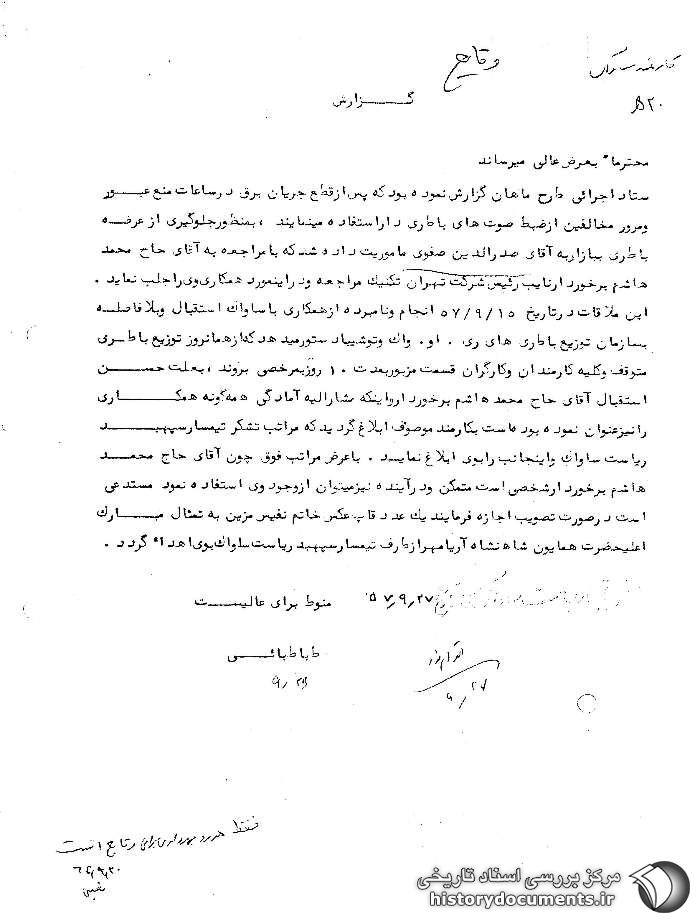 وقایع
۲۰
گزارش
محترما" بعرض عالی میرساند
ستاد اجرائی طرح ماهان گزارش نموده بود که پس از قطع جریان برق در ساعات منع عبور
ومرور مخالفین از ضبط صوت های باطری دار استفاده مینمایند ، بمنظور جلوگیری از عرضه
باطری ببازار به آقای صدرالدین صفوی ماموریت داده شد که با مراجعه به آقای حاج محمد
هاشم برخوردار نایب رئیس شرکت تهران تکنیک مراجعه ودر اینمورد همکاری وی را جلب نماید .
این ملاقات در تاریخ ۵۷/۹/۱۵ انجام ونامبرده از همکاری با ساواک استقبال وبلافاصله
بسازمان توزیع باطری های ری . او . واک وتوشیبا دستور میدهد که از همانروز توزیع باطری
متوقف وکلیه کارمندان وکارگران قسمت مزبور بمدت ۱۰ روز بمرخصی بروند ، بعلت حسن
استقبال آقای حاج محمد هاشم برخوردار واینکه مشارالیه آمادگی همه گونه همکاری
را نیز عنوان نموده بوده است بکارمند موصوف ابلاغ گردید که مراتب تشکر تیمسار سپهبد
ریاست ساواک واینجانب را بوی ابلاغ نماید . با عرض مراتب فوق چون آقای حاج محمد
هاشم برخوردار شخصی است متمکن ودر آینده نیز میتوان از وجود وی استفاده نمود مستدعی
است در صورت تصویب اجازه فرمایند یک عدد قاب عکس خاتم نفیس مزین به تمثال مبارک
اعلیحضرت همایون شاهنشاه آریامهر از طرف تیمسار سپهبد ریاست ساواک بوی اهداء گردد .
منوط برای عالیست
۵۷٫۹٫۲۷
طباطبائی
۹٫۲۷
فقط مورد بهره برداری وقایع است
مرکز بررسی اسناد تاریخی
historydocuments.ir